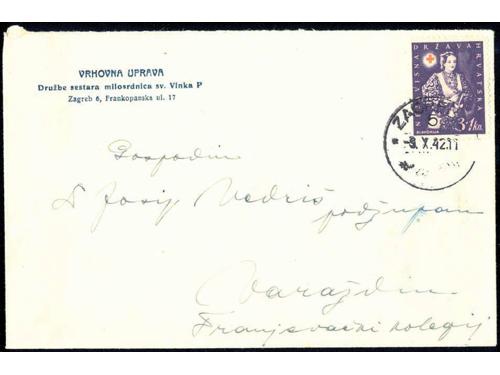 VRHOVNA UPRAVA
Družbe sestara milosrdnica sv. Vinka P
Zagreb 6, Frankopanska ul. 17
NEZAVISNA DRŽAVA HRVATSKA
3+1kn.
SLAVONIJA
ZAGREB
5
-9.X.42.11
Gospodin
D Josip Vedriš
podžupan
Varaždin
Franjevački kolegij